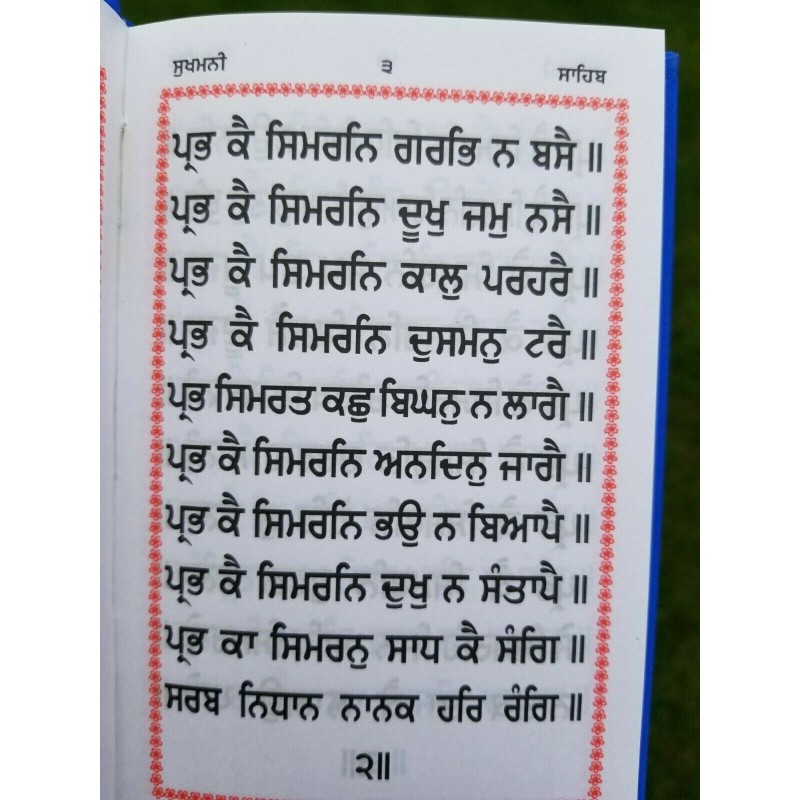 ਸੁਖਮਨੀ ੩ ਸਾਹਿਬ
ਪ੍ਰਭ ਕੈ ਸਿਮਰਨਿ ਗਰਭਿ ਨ ਬਸੈ ॥
ਪ੍ਰਭ ਕੈ ਸਿਮਰਨਿ ਦੂਖੁ ਜਮੁ ਨਸੈ ॥
ਪ੍ਰਭ ਕੈ ਸਿਮਰਨਿ ਕਾਲੁ ਪਰਹਰੈ ॥
ਪ੍ਰਭ ਕੈ ਸਿਮਰਨਿ ਦੁਸਮਨੁ ਟਰੈ ॥
ਪ੍ਰਭ ਸਿਮਰਤ ਕਛੁ ਬਿਘਨੁ ਨ ਲਾਗੈ ॥
ਪ੍ਰਭ ਕੈ ਸਿਮਰਨਿ ਅਨਦਿਨੁ ਜਾਗੈ ॥
ਪ੍ਰਭ ਕੈ ਸਿਮਰਨਿ ਭਉ ਨ ਬਿਆਪੈ ॥
ਪ੍ਰਭ ਕੈ ਸਿਮਰਨਿ ਦੁਖੁ ਨ ਸੰਤਾਪੈ ॥
ਪ੍ਰਭ ਕਾ ਸਿਮਰਨੁ ਸਾਧ ਕੈ ਸੰਗਿ ॥
ਸਰਬ ਨਿਧਾਨ ਨਾਨਕ ਹਰਿ ਰੰਗਿ ॥
੨॥